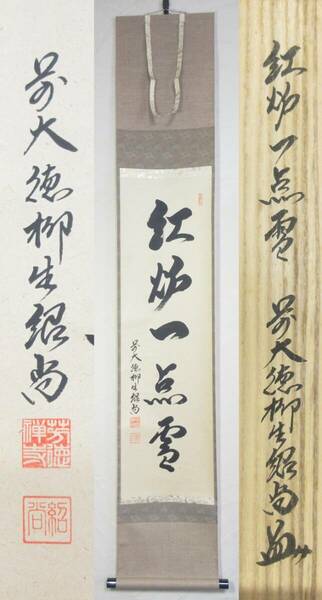 前大徳柳生紹尚
芳徳禅寺
紹尚
紅炉一点雪
前大徳柳生紹尚
紅炉一点雪
前大徳柳生紹尚